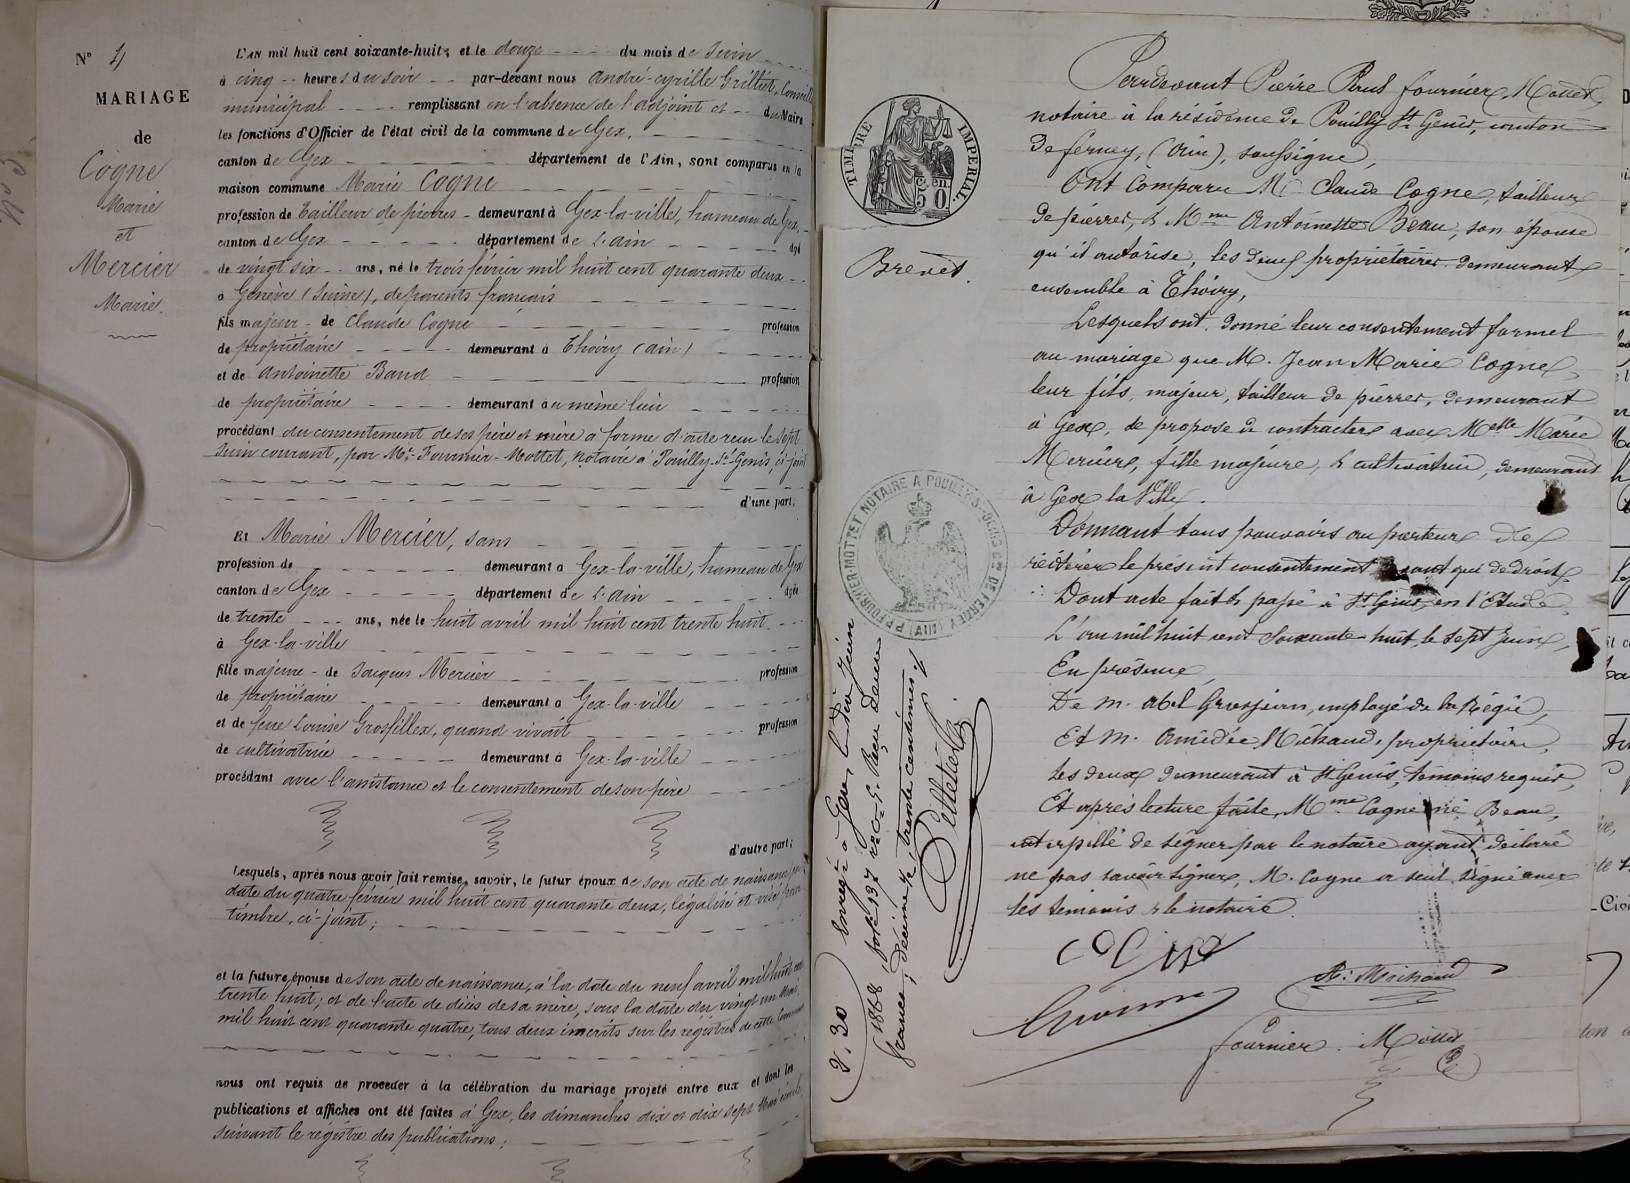 N° 4
MARIAGE
de
Cogne
Marie
et
Mercier
Marie.
L'AN mil huit cent soixante-huit, et le douze du mois de Juin
à cinq heures du soir par-devant nous André-Cyrille Grilliet, Conseiller
municipal remplissant en l'absence de l'adjoint et du Maire
les fonctions d'Officier de l'état civil de la commune de Gex,
canton de Gex département de l'Ain, sont comparus en la
maison commune Marie Cogne
profession de tailleur de pierres demeurant à Gex-la-ville, hameau de Gex,
canton de Gex département de l'Ain âgé
de vingt six ans, né le trois février mil huit cent quarante deux
à Genève (Suisse), de parents français
fils majeur de Claude Cogne profession
de propriétaire demeurant à Thoiry (Ain)
et de Antoinette Baud profession
de propriétaire demeurant au même lieu
procédant du consentement de ses père et mère à forme d'acte reçu le sept
Juin courant, par Me Fournier-Mottet, notaire à Pouilly-St-Genis, ci-joint
d'une part.
Et Marie Mercier, sans
profession de demeurant à Gex-la-ville, hameau de Gex
canton de Gex département de l'Ain âgée
de trente ans, née le huit avril mil huit cent trente huit
à Gex-la-ville
fille majeure de Jacques Mercier profession
de propriétaire demeurant à Gex-la-ville
et de feue Louise Grosfillex, quand vivait profession
de cultivatrice demeurant à Gex-la-ville
procédant avec l'assistance et le consentement de son père
d'autre part;
Lesquels, après nous avoir fait remise, savoir, le futur époux de son acte de naissance
date du quatre février mil huit cent quarante deux, légalisé et visé pour
timbre, ci-joint;
et la future épouse de son acte de naissance, à la date du neuf avril mil huit cent
trente huit; et de l'acte de décès de sa mère, sous la date du vingt un Mai
mil huit cent quarante quatre, tous deux inscrits sur les registres de cette Commune
nous ont requis de procéder à la célébration du mariage projeté entre eux et dont les
publications et affiches ont été faites à Gex, les dimanches dix et dix sept Mai
suivant le registre des publications;
TIMBRE IMPERIAL
50 cen.
Brevet.
P. FOURNIER-MOTTET NOTAIRE A POUILLY-ST-GENIS CN DE FERNEY (AIN)
Pardevant Pierre Paul Fournier-Mottet,
notaire à la résidence de Pouilly St Genis, canton
de ferney, (Ain), soussigné,
Ont Comparu M. Claude Cogne, tailleur
de pierres, & Mme Antoinette Beau, son épouse
qu'il autorise, les deux propriétaires demeurant
ensemble à Thoiry,
Lesquels ont donné leur consentement formel
au mariage que M. Jean Marie Cogne,
leur fils, majeur, tailleur de pierres, demeurant
à Gex, se propose de contracter avec Melle Marie
Mercier, fille majeure, & cultivatrice, demeurant
à Gex la Ville.
Donnant tous pouvoirs au porteur de
réitérer le présent consentement devant qui de droit.
Dont acte fait & passé à St Genis, en l'Etude
L'an mil huit cent soixante huit, le sept Juin,
En présence
De M. Abel Grosjean, employé de la Régie,
Et M. Amédée Michaud, propriétaire,
les deux demeurant à St Genis, témoins requis,
Et après lecture faite, Mme Cogne née Beau,
interpellé de signer par le notaire ayant déclaré
ne pas savoir signer, M. Cogne a seul signé avec
les témoins & le notaire.
Fournier. Mottet
2.30
Enregé à Gex le Dix Juin
1868, fol. 137 rec. Reçu deux
francs, décime & trente centimes
Pelletier